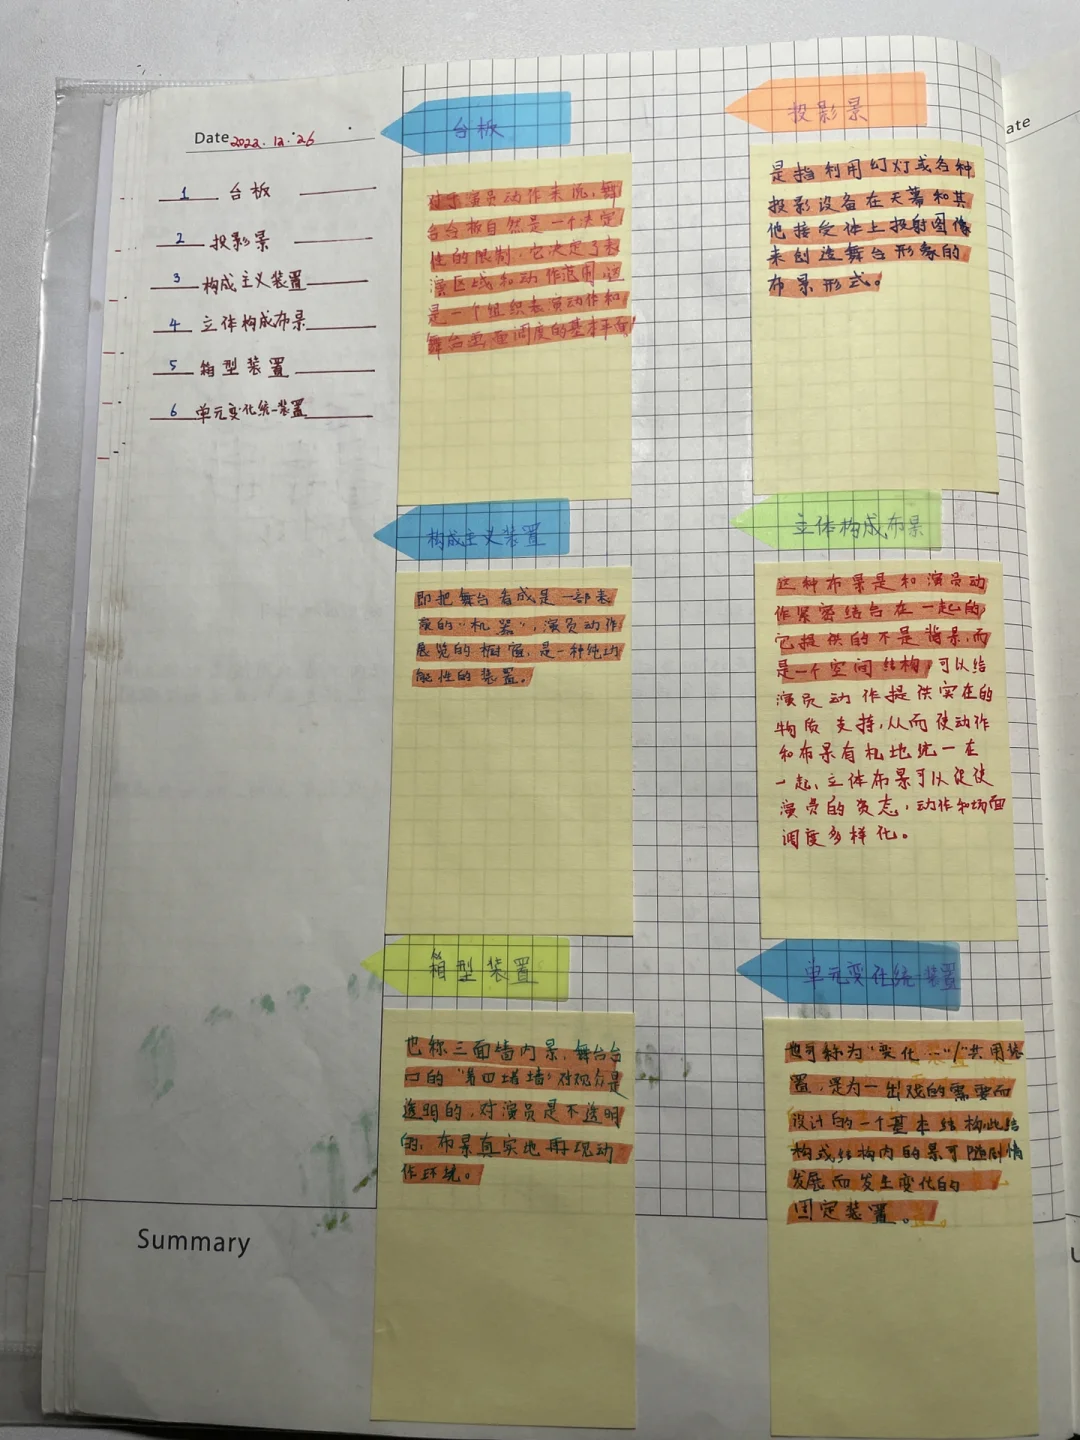 Date 2022.12.26
1 台板
2 投影景
3 构成主义装置
4 立体构成布景
5 箱型装置
6 单元变化统一装置
台板
对于演员动作来说,舞
台台板自然是一个决定
性的限制,它决定了表
演区域和动作范围,这
是一个组织表演动作和
舞台画面调度的基本平面
投影景
是指利用幻灯或各种
投影设备在天幕和其
他接受体上投射图像
来创造舞台形象的
布景形式。
构成主义装置
即把舞台看成是一部表
演的“机器”,演员动作
展览的橱窗,是一种纯功
能性的装置。
立体构成布景
这种布景是和演员动
作紧密结合在一起的,
它提供的不是背景,而
是一个空间结构,可以给
演员动作提供实在的
物质支持,从而使动作
和布景有机地统一在
一起,立体布景可以促使
演员的姿态,动作和场面
调度多样化。
箱型装置
也称三面墙内景,舞台台
口的“第四堵墙”对观众是
透明的,对演员是不透明
的,布景真实地再现动
作环境。
单元变化统一装置
也可称为“变化统一”/“共用装
置,是为一出戏的需要而
设计的一个基本结构,此结
构或结构内的景可随剧情
发展而发生变化的
固定装置。
Summary
ate